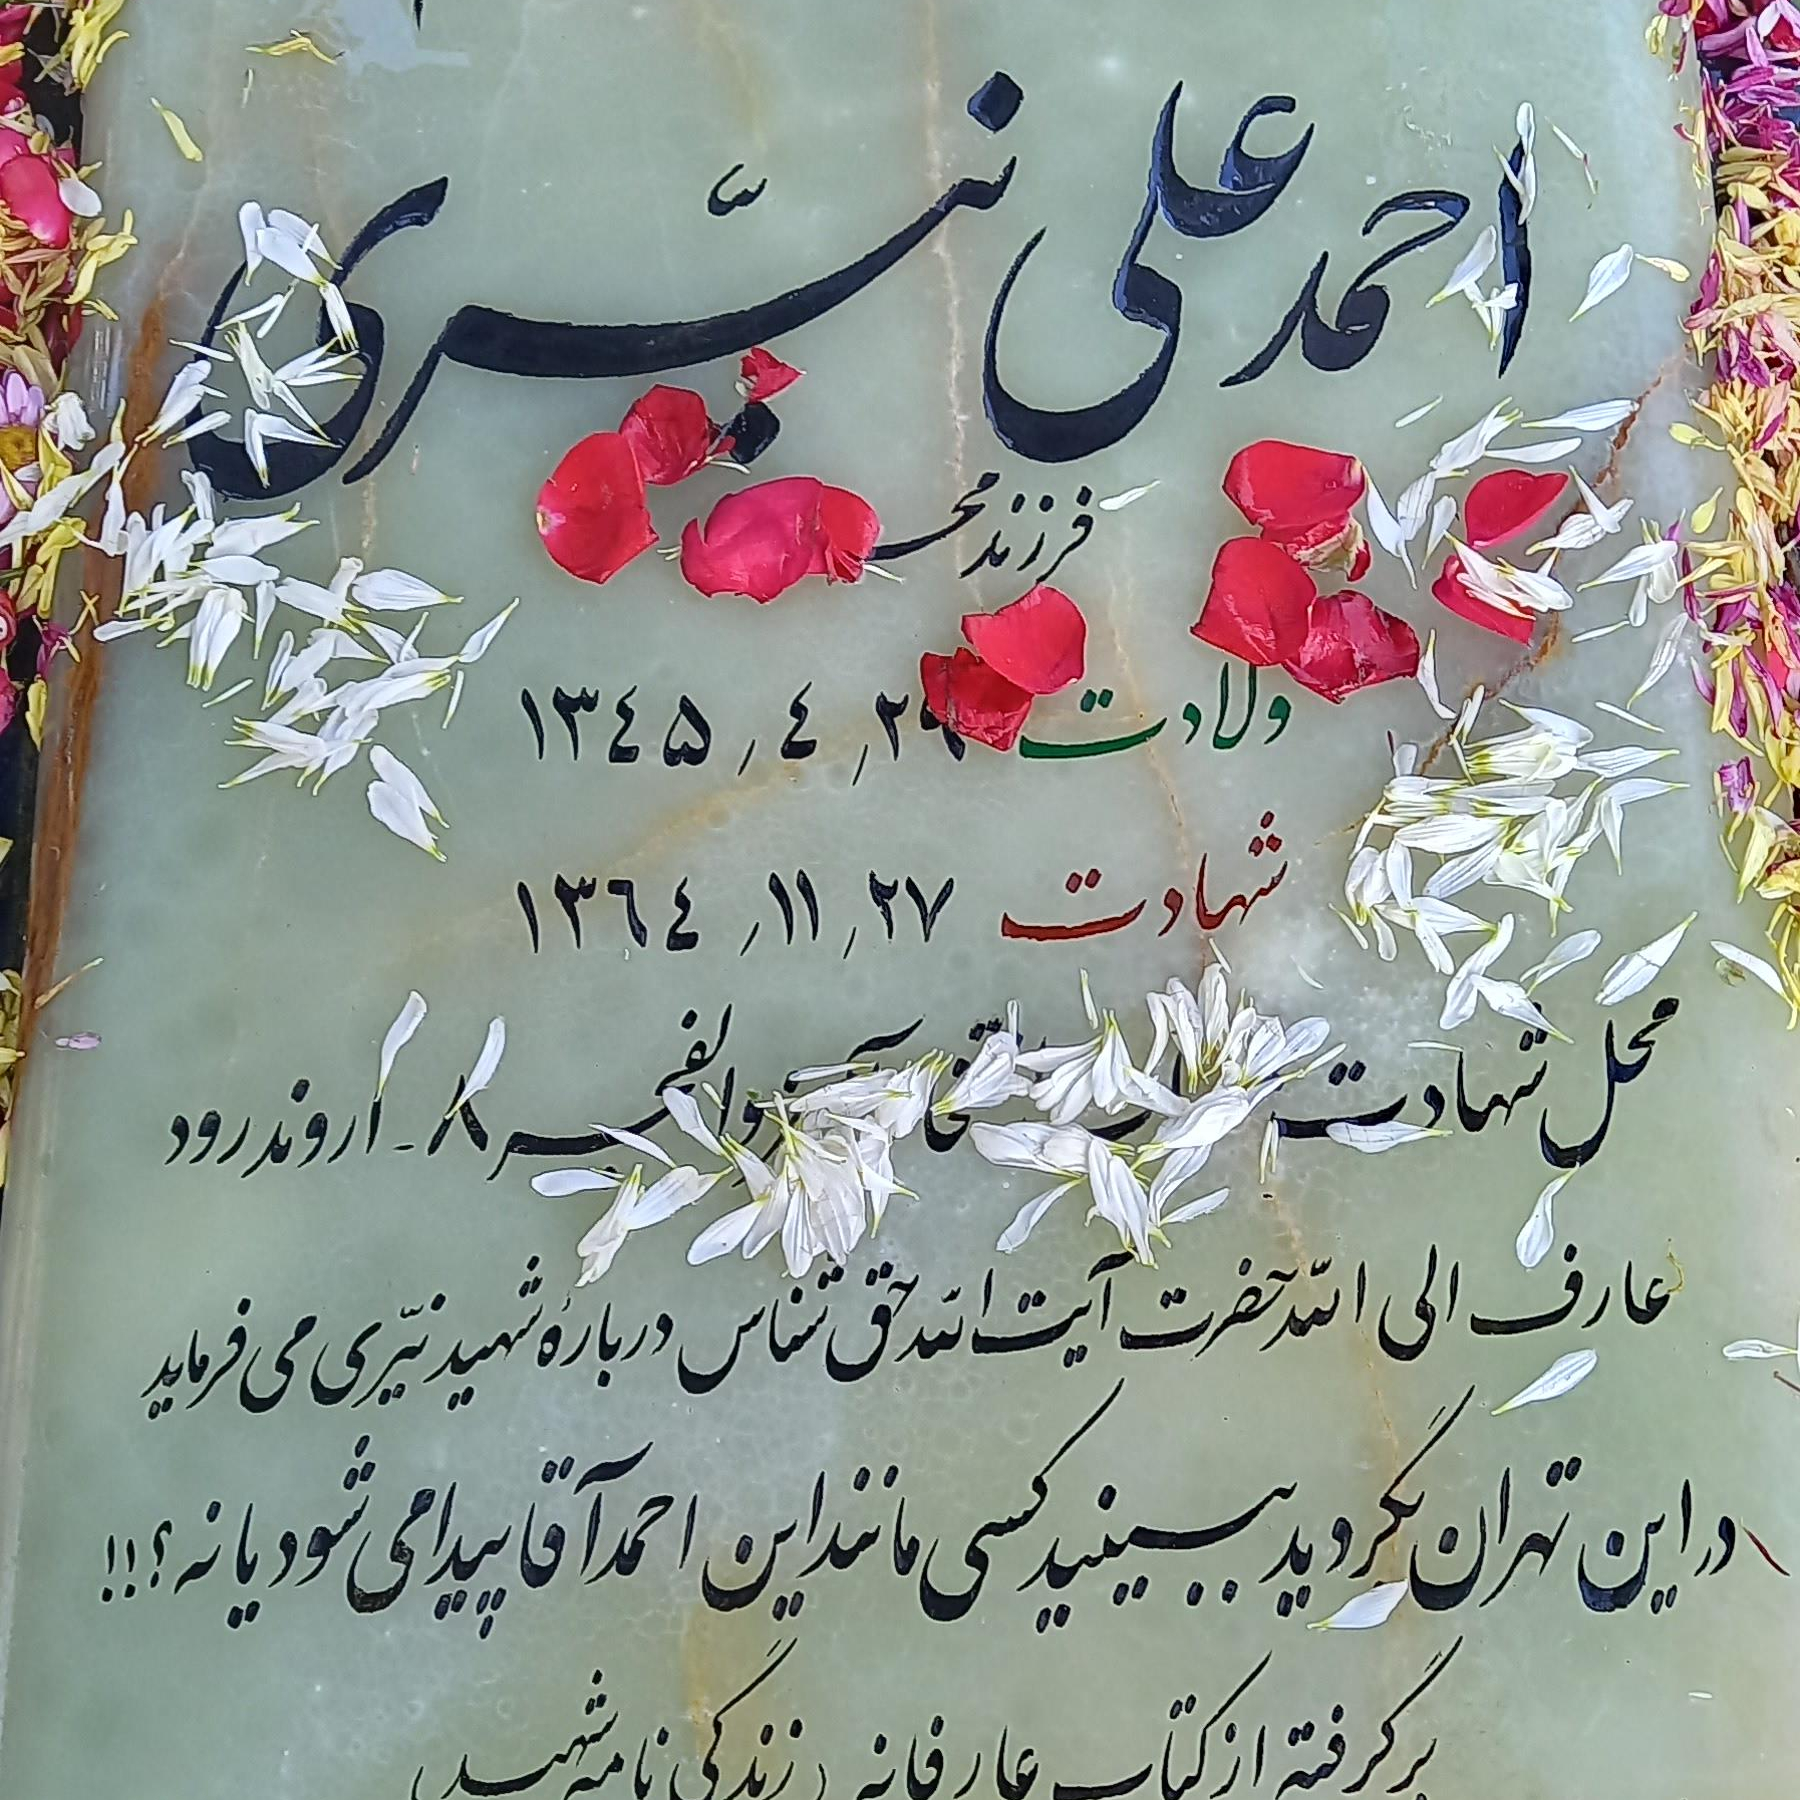 احمد علی نیّری
فرزند
ولادت ۲۹٫ ۴٫ ۱۳۴۵
شهادت ۲۷٫ ۱۱٫ ۱۳۶۴
محل شهادت والفجر ۸ - اروند رود
عارف الی الله حضرت آیت الله حق شناس دربارهٔ شهید نیّری می فرماید
در این تهران بگردید ببینید کسی مانند این احمد آقا پیدا می شود یا نه؟!!
برگرفته از کتاب عارفانه (زندگی نامه شهید)